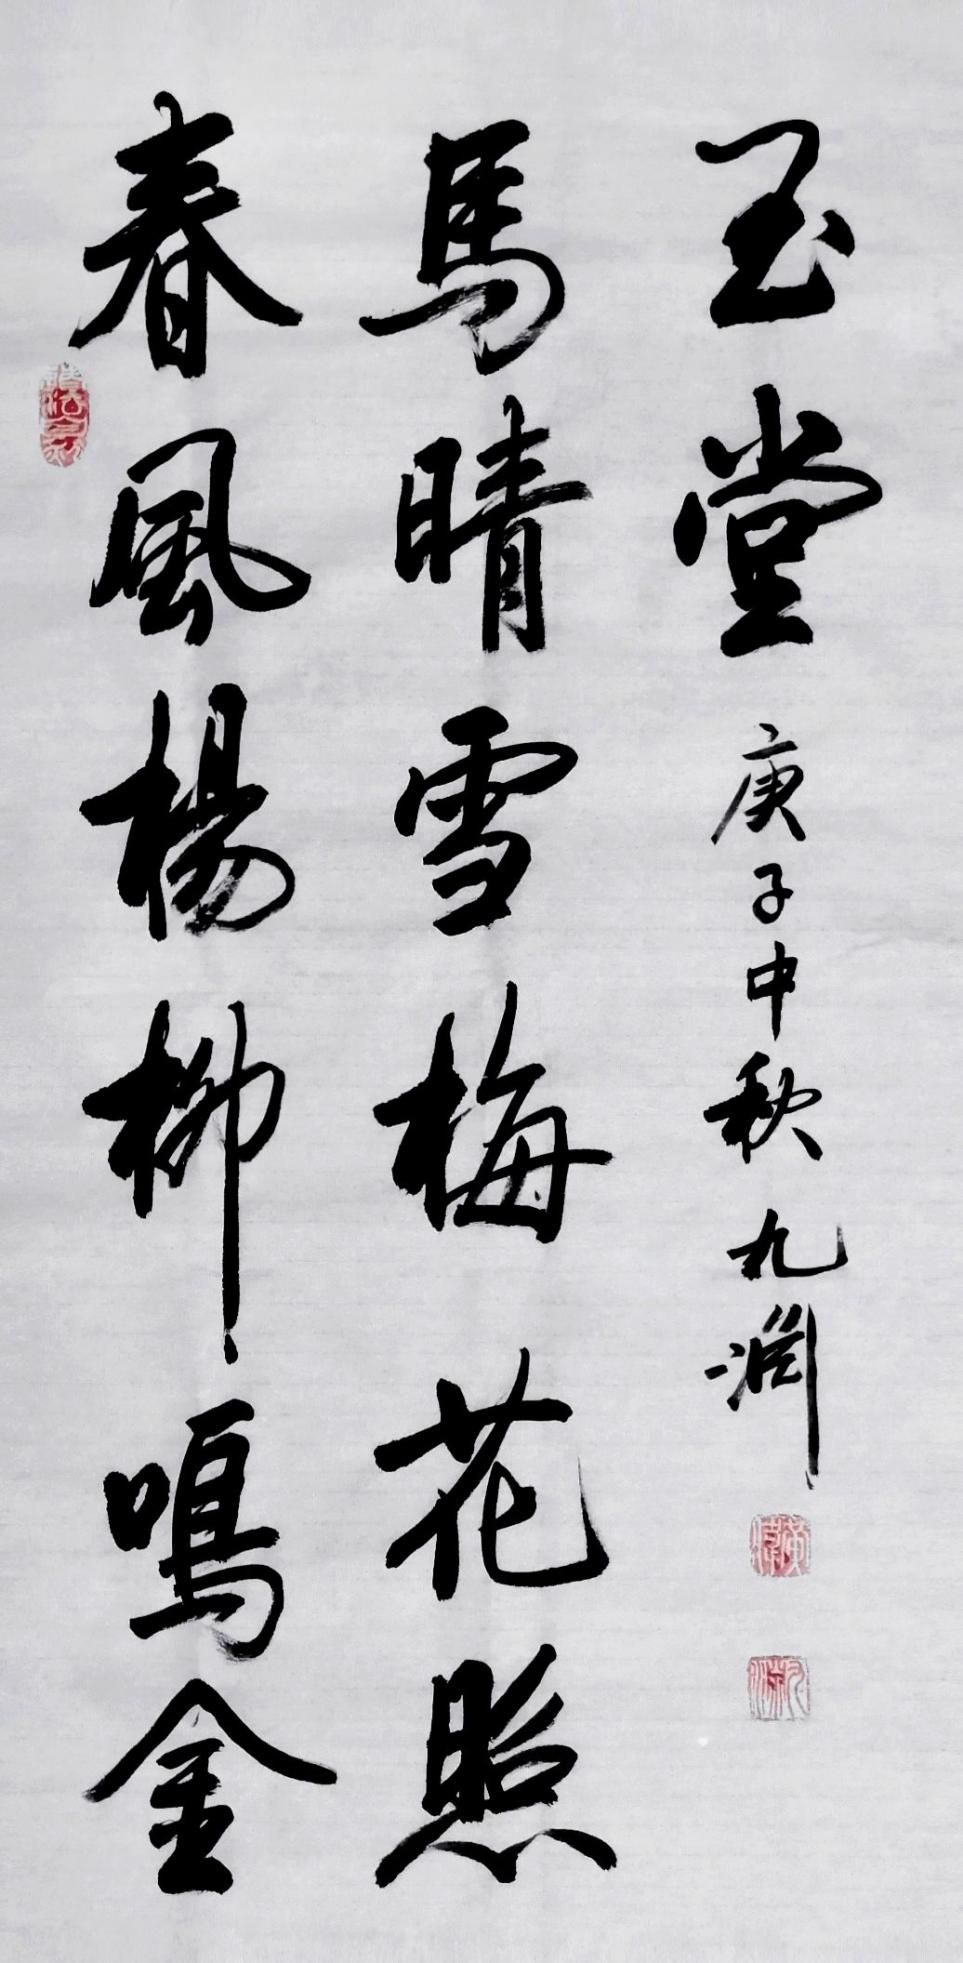 春風楊柳鳴金
馬晴雪梅花照
玉堂 庚子中秋 九渊